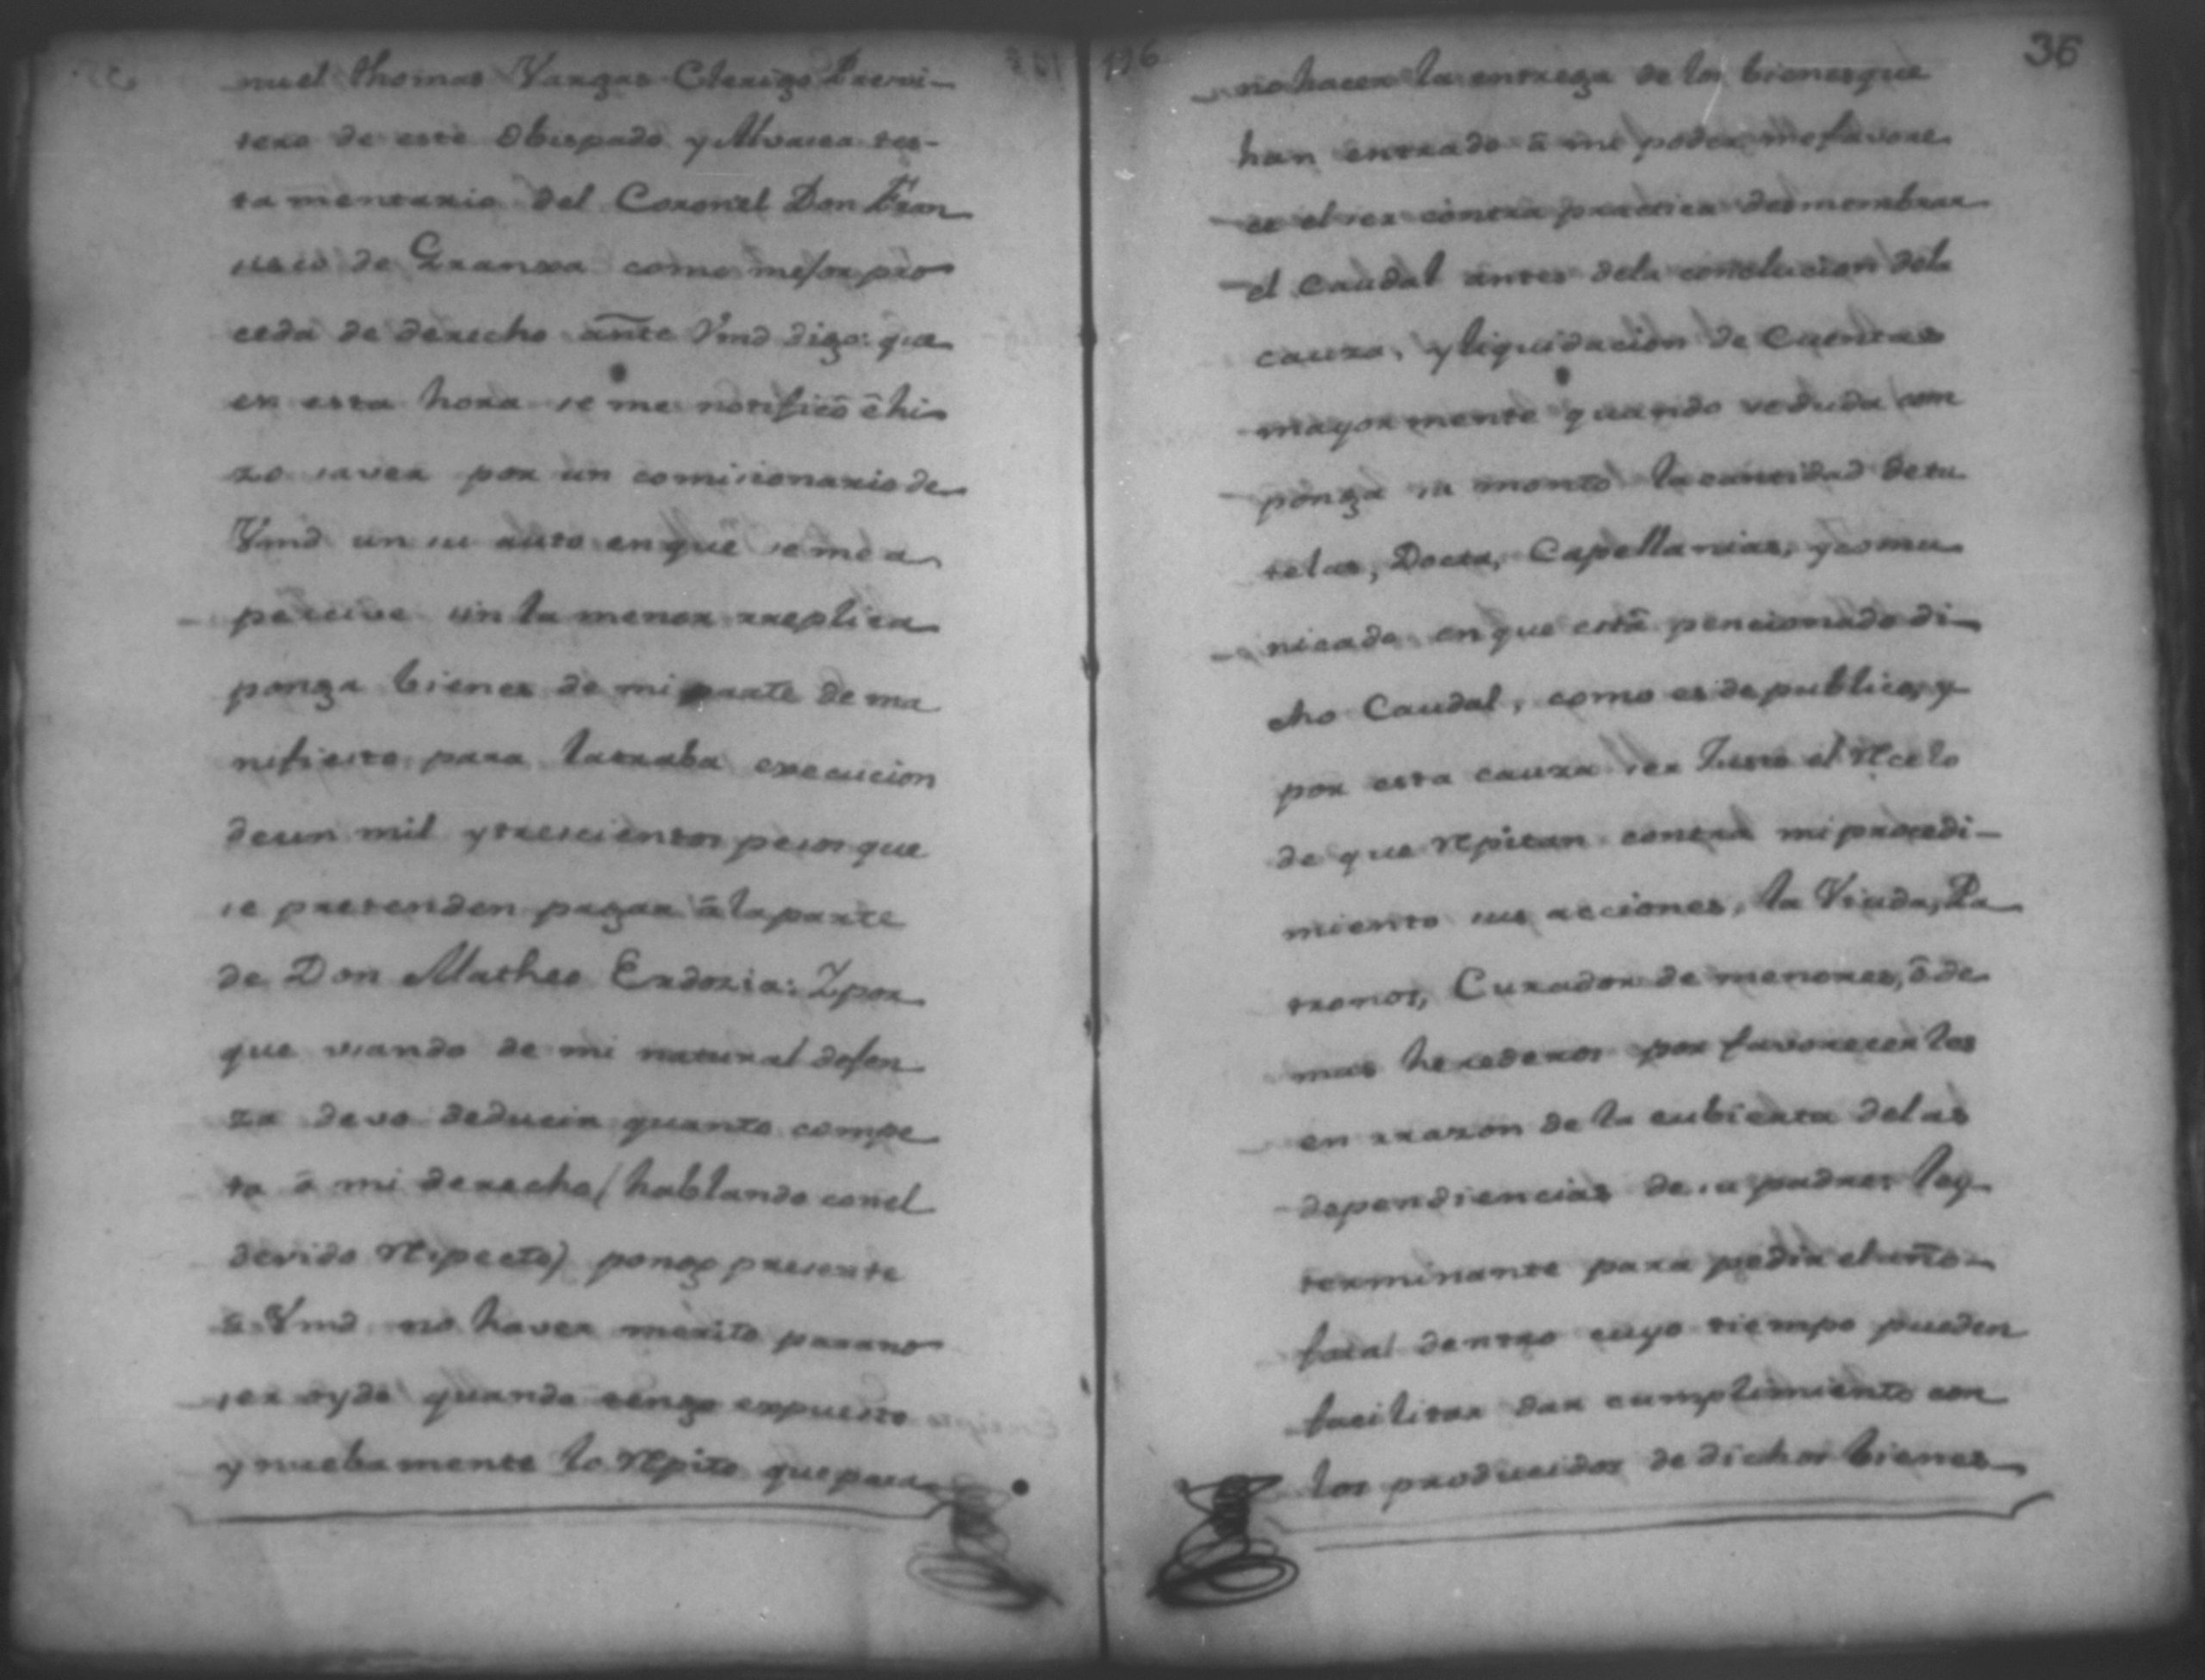 nuel thomas Vargas Clerigo Presvi-
tero de este Obispado y Alvasea tes-
tamentario del Coronel Don Fran
sisco de Granxa como mejor pro
ceda de derecho ante Vmd digo: que
en esta hora se me notificó é hi
zo saver por un comicionario de
Vmd un su auto en que se me a
percive sin la menor rreplica
ponga bienes de mi parte de ma
nifiesto para la traba execucion
de un mil y trescientos pesos que
se pretenden pagar á la parte
de Don Matheo Erdozia: Y por
que usando de mi natural defen
za devo deducir quanto compe
ta á mi derecho (hablando con el
devido respecto) pongo presente
á Vmd no haver merito para no
ser oydo quando tengo expuesto
y nuebamente lo repito que para
196
36
no hacer la entrega de los bienes que
han entrado á mi poder me favore
ce el ser contra practica desmembrar
el Caudal antes de la conclucion de la
cauza, y liquidacion de Cuentas
mayormente quando se duda com
ponga su monto la cantidad de tu
telas, Doctr, Capellanias, y comu
nicado en que está pencionado di-
cho Caudal, como es de publico, y
por esta cauza ser Justo el recelo
de que repitan contra mi procedi-
miento sus acciones, la Viuda, Pa
tronos, Curador de menores, ó de
mas herederos por favorecerles
en rrazon de la cubierta de las
dependiencias de su padre ley
terminante para pedir el año
fatal dentro cuyo tiempo pueden
facilitar dar cumplimiento con
los producidos de dichos bienes